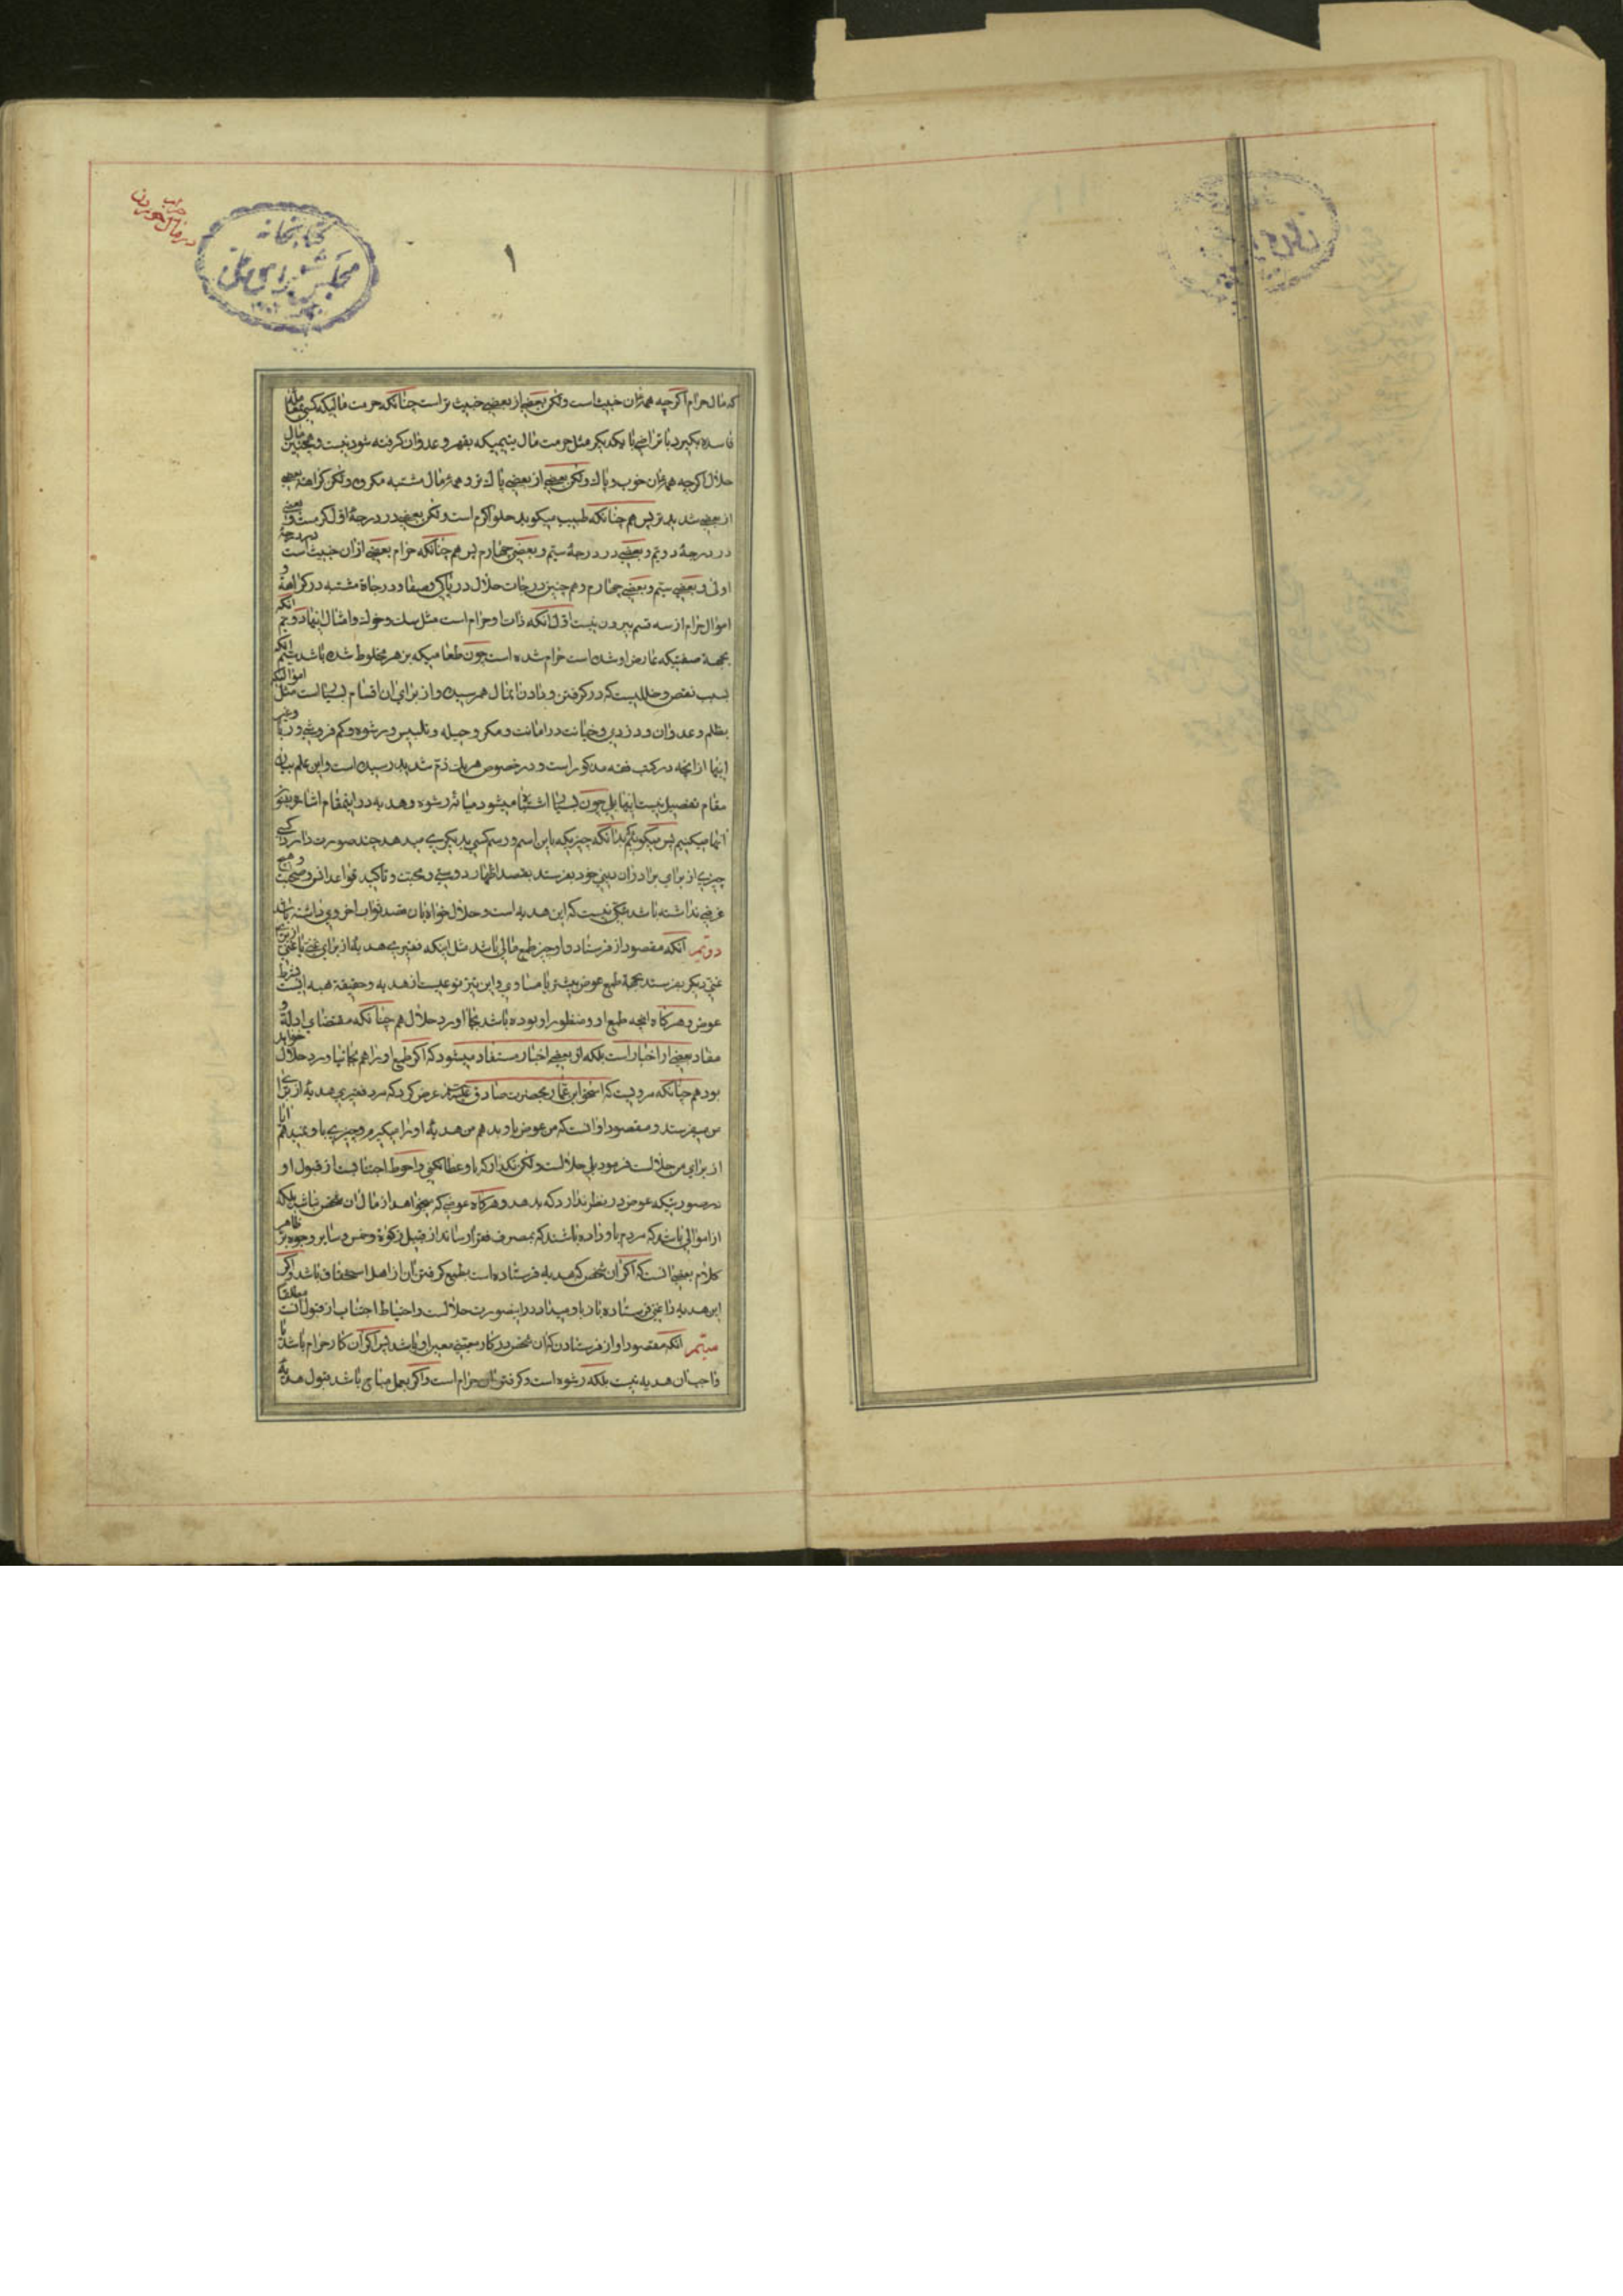 در مال حرام خوردن
کتابخانه
مجلس شورای ملی
۱
که مال حرام اکرچه همه ان خبیث است ولکن بعضی از بعضی خبیث تر است چنانکه حرمت مالیکه کسی بمعامله
فاسده بکیرد با تراضی با یکدیکر مثل حرمت مال یتیمیکه بقهر و عدوان کرفته شود نیست و همچنین مال
حلال اکرچه همه ان خوب و پاک ولکن بعضی از بعضی پاک تر و همه مال مشتبه مکروه ولکن کراهة بعضی
از بعضی شدید تر پس هم چنانکه طبیب میکوید حلوا کرم است ولکن بعضی در درجهٔ اول کرمست و بعضی
در درجهٔ دویم و بعضی در درجهٔ سیم و بعضی چهارم پس هم چنانکه حرام بعضی از ان خبیث است در درجهٔ
اولی و بعضی سیم و بعضی چهارم و هم چنین درجات حلال در پاکی و صفا و درجاة مشتبه در کراهة و
اموال حرام از سه قسم بیرون نیست اول انکه ذات او حرام است مثل سک و خوک و امثال اینها دویم انکه
بجهة صفتیکه عارض او شده است حرام شده است چون طعامیکه بزهر مخلوط شده باشد سیم انکه
بسبب نقص و خللیست که در کرفتن و دادن انمال همرسیده و از برای ان اقسام بسیار است مثل اموالیکه
بظلم و عدوان و دزدی و خیانت در امانت و مکر و حیله و تلبیس و رشوه و کم فروشی و ربا و غیر
اینها از انچه در کتب فقه مذکور است و در خصوص هریک ذم شدید رسیده است و این علم بیان
مقام تفصیل نیست اینها بلی چون بسیار اشتباه میشود میانهٔ رشوه و هدیه در اینمقام اشاعره بنحو
انها میکنیم پس میکوئیم بدانکه چیزیکه باین اسم و رسم کسی بدیکری میدهد چند صورت دارد کسی
چیزی از برای برادران دینی خود بفرستد بقصد اظهار دوستی و محبت و تاکید قواعد انس و صحبت و هیچ
غرضی نداشته باشد شکی نیست که این هدیه است و حلال خواه بان قصد ثواب اخروی داشته باشد
دویم انکه مقصود از فرستادن او چیز طمع مالی باشد مثل اینکه فقیری هدیهٔ از برای غنی یا غنی از برای
غنی دیکر بفرستد بجهة طمع عوض بیشتر یا مساوی و این نیز نوعیست از هدیه و حقیقة هبه است بشرط
عوض و هرکاه انچه طمع او و منظور او بوده باشد بجا آورد حلال هم چنانکه مقتضای ادله و
مفاد بعضی از اخبار است بلکه از بعضی اخبار مستفاد میشود که اکر طمع او را هم بجا نیاورد حلال خواهد
بود هم چنانکه مرویست که اسحق ابن عمار بحضرت صادق عرض کرد که مرد فقیری هدیهٔ از برای
من میفرستد و مقصود او انست که من عوض باو بدهم من هدیهٔ او را میکیرم و چیزی باو نمیدهم ایا
از برای من حلالست فرمود بلی حلالست ولکن نکذار که باو عطا نکنی و احوط اجتنابست از قبول او
در صورتیکه عوض در نظر ندارد که بدهد و هرکاه عوضی که میخواهد از مال ان شخص نباشد بلکه
از اموالی باشد که مردم باو داده باشند که بمصرف فقرا رساند از قبیل زکوة و خمس و سایر وجوه بر ظاهر
کلام بعضی انست که اکر ان شخص که هدیه فرستاده است بطمع کرفتن ان از اهل استحقاق باشد و اکر
این هدیه را نمی فرستاد باز باو میداد در اینصورت حلالست و احتیاط اجتناب از قبول انست مطلقا
سیم انکه مقصود او از فرستادن که ان شخص در کار معینی معین او باشد پس اکر ان کار حرام باشد یا
واجب ان هدیه نیست بلکه رشوه است و کرفتن ان حرام است و اکر بعمل مباح باشد قبول هدیهٔ